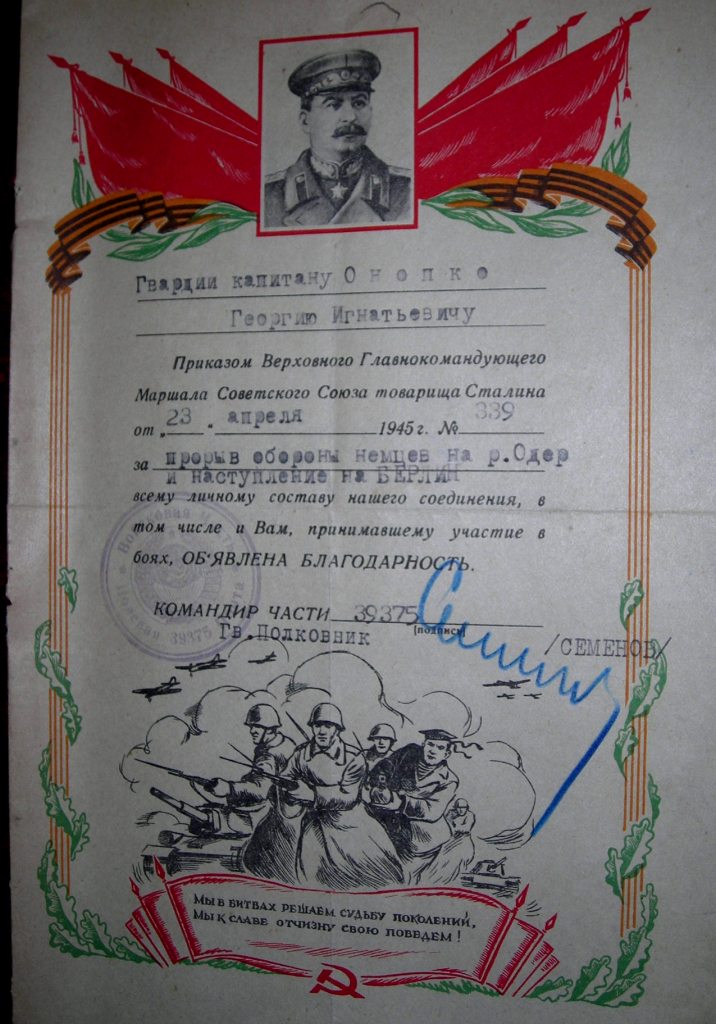 Гвардии капитану Онопко
Георгию Игнатьевичу
Приказом Верховного Главнокомандующего
Маршала Советского Союза товарища Сталина
от „23" апреля 1945 г. № 339
за прорыв обороны немцев на р.Одер
и наступление на БЕРЛИН
всему личному составу нашего соединения, в
том числе и Вам, принимавшему участие в
боях, ОБ'ЯВЛЕНА БЛАГОДАРНОСТЬ.
КОМАНДИР ЧАСТИ 39375
Гв.Полковник [подпись] /СЕМЕНОВ/
Полевая 39375
МЫ В БИТВАХ РЕШАЕМ СУДЬБУ ПОКОЛЕНИЙ,
МЫ К СЛАВЕ ОТЧИЗНУ СВОЮ ПОВЕДЕМ!